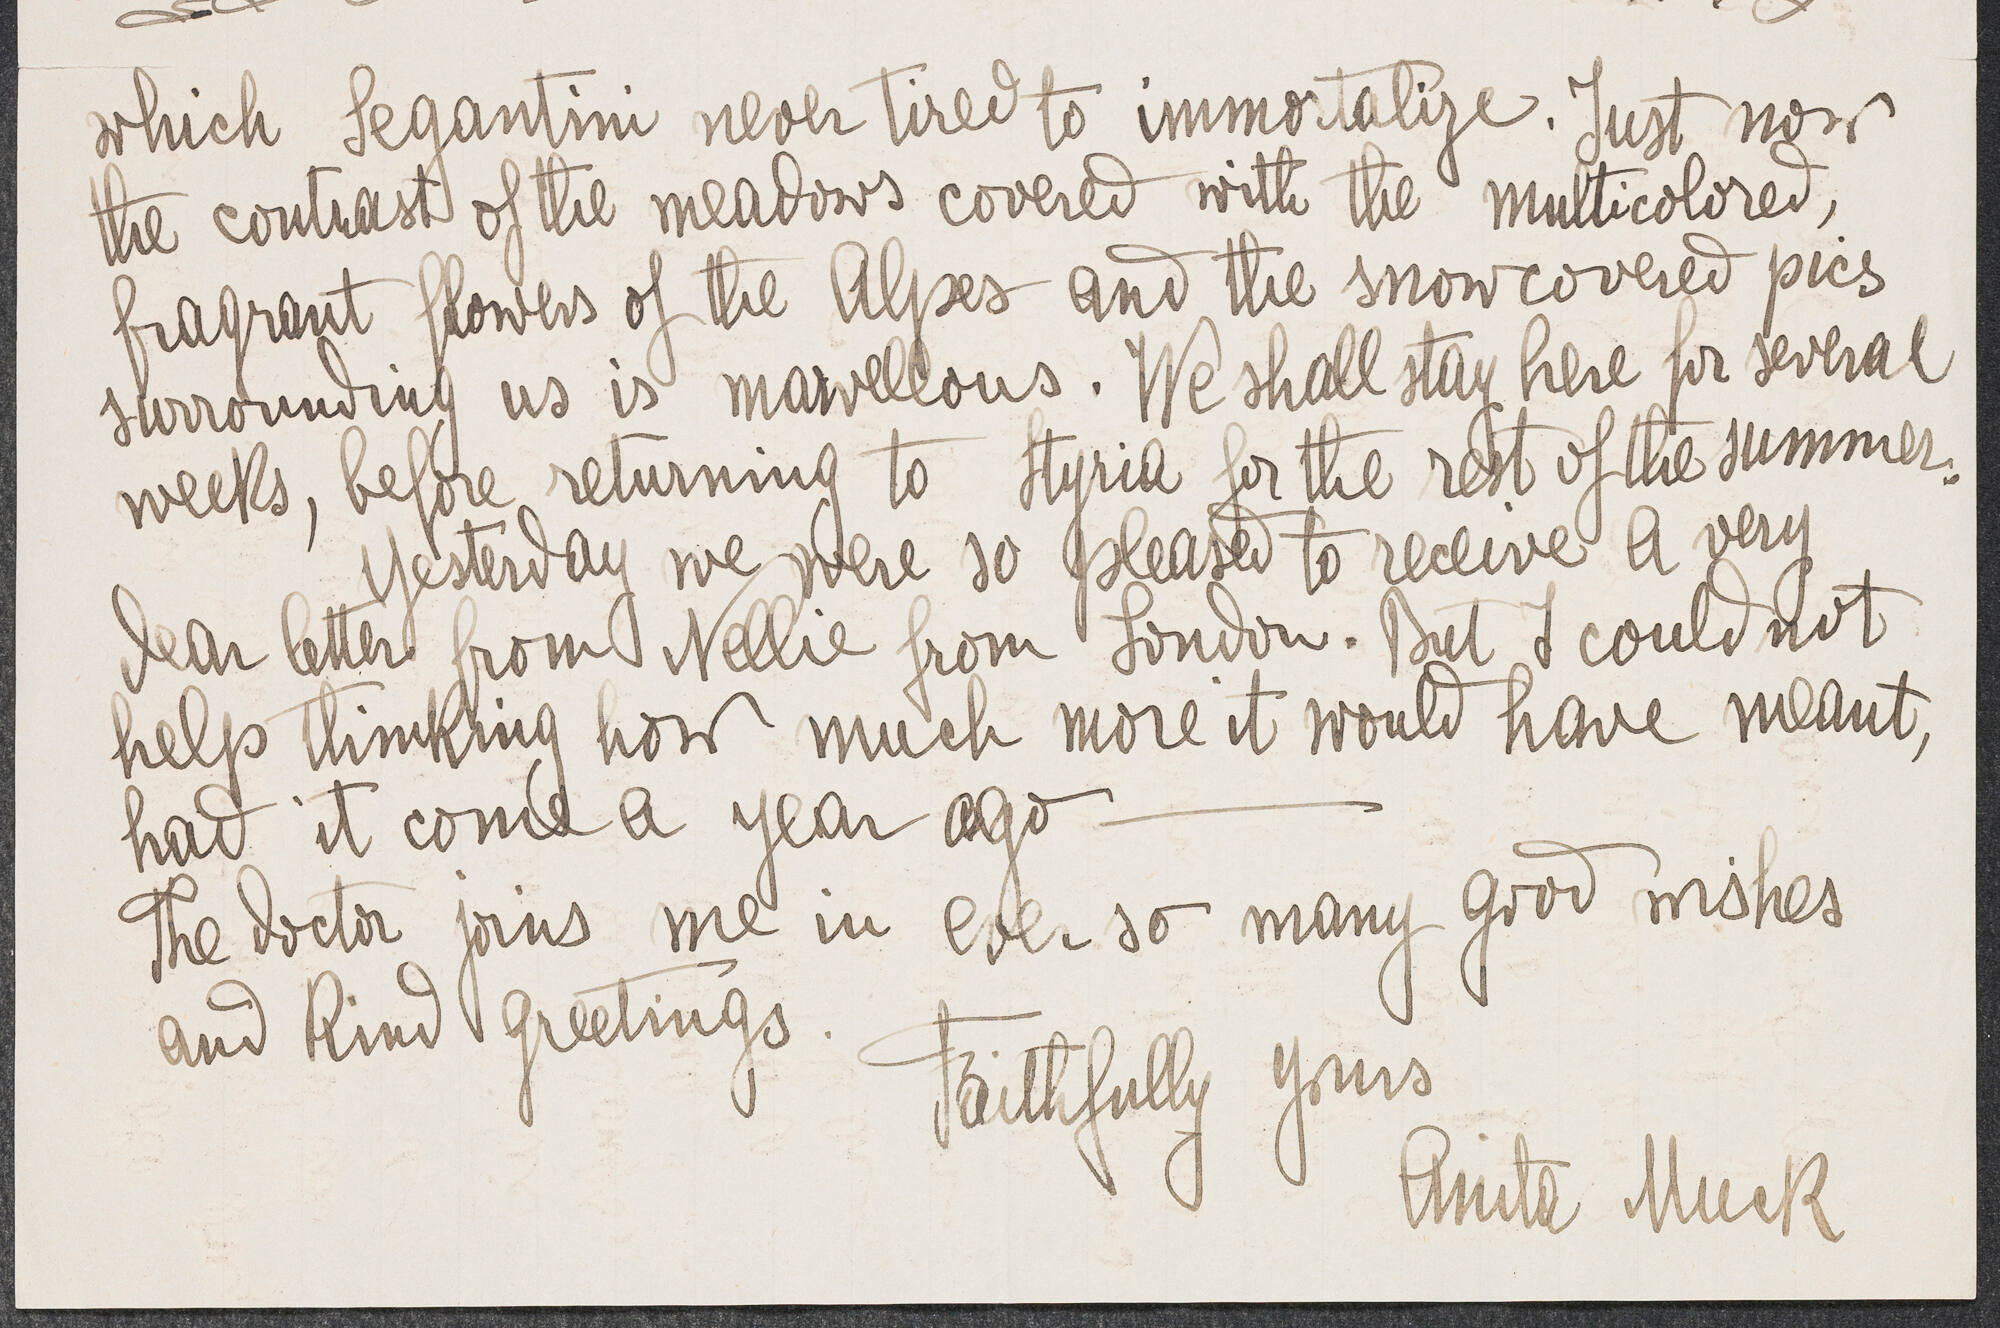 which Segantini never tired to immortalize. Just now
the contrast of the meadows covered with the multicolored,
fragrant flowers of the Alpes and the snowcovered pics
surrounding us is marvellous. We shall stay here for several
weeks, before returning to Styria for the rest of the summer.
Yesterday we were so pleased to receive a very
dear letter from Nellie from London. But I could not
help thinking how much more it would have meant,
had it come a year ago —
The doctor joins me in ever so many good wishes
and kind greetings.
Faithfully yours
Anita Muck